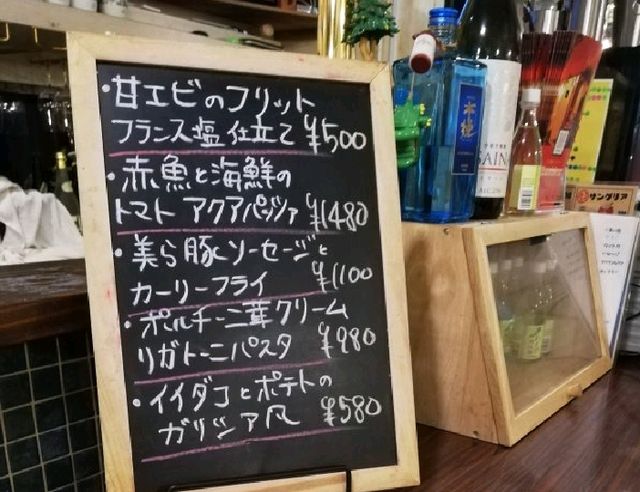 ・甘エビのフリット
フランス塩仕立て ¥500
・赤魚と海鮮の
トマト アクアパッツァ ¥1480
・美ら豚ソーセージと
カーリーフライ ¥1100
・ポルチーニ茸クリーム
リガトーニパスタ ¥980
・イイダコとポテトの
ガリシア風 ¥580
サングリア